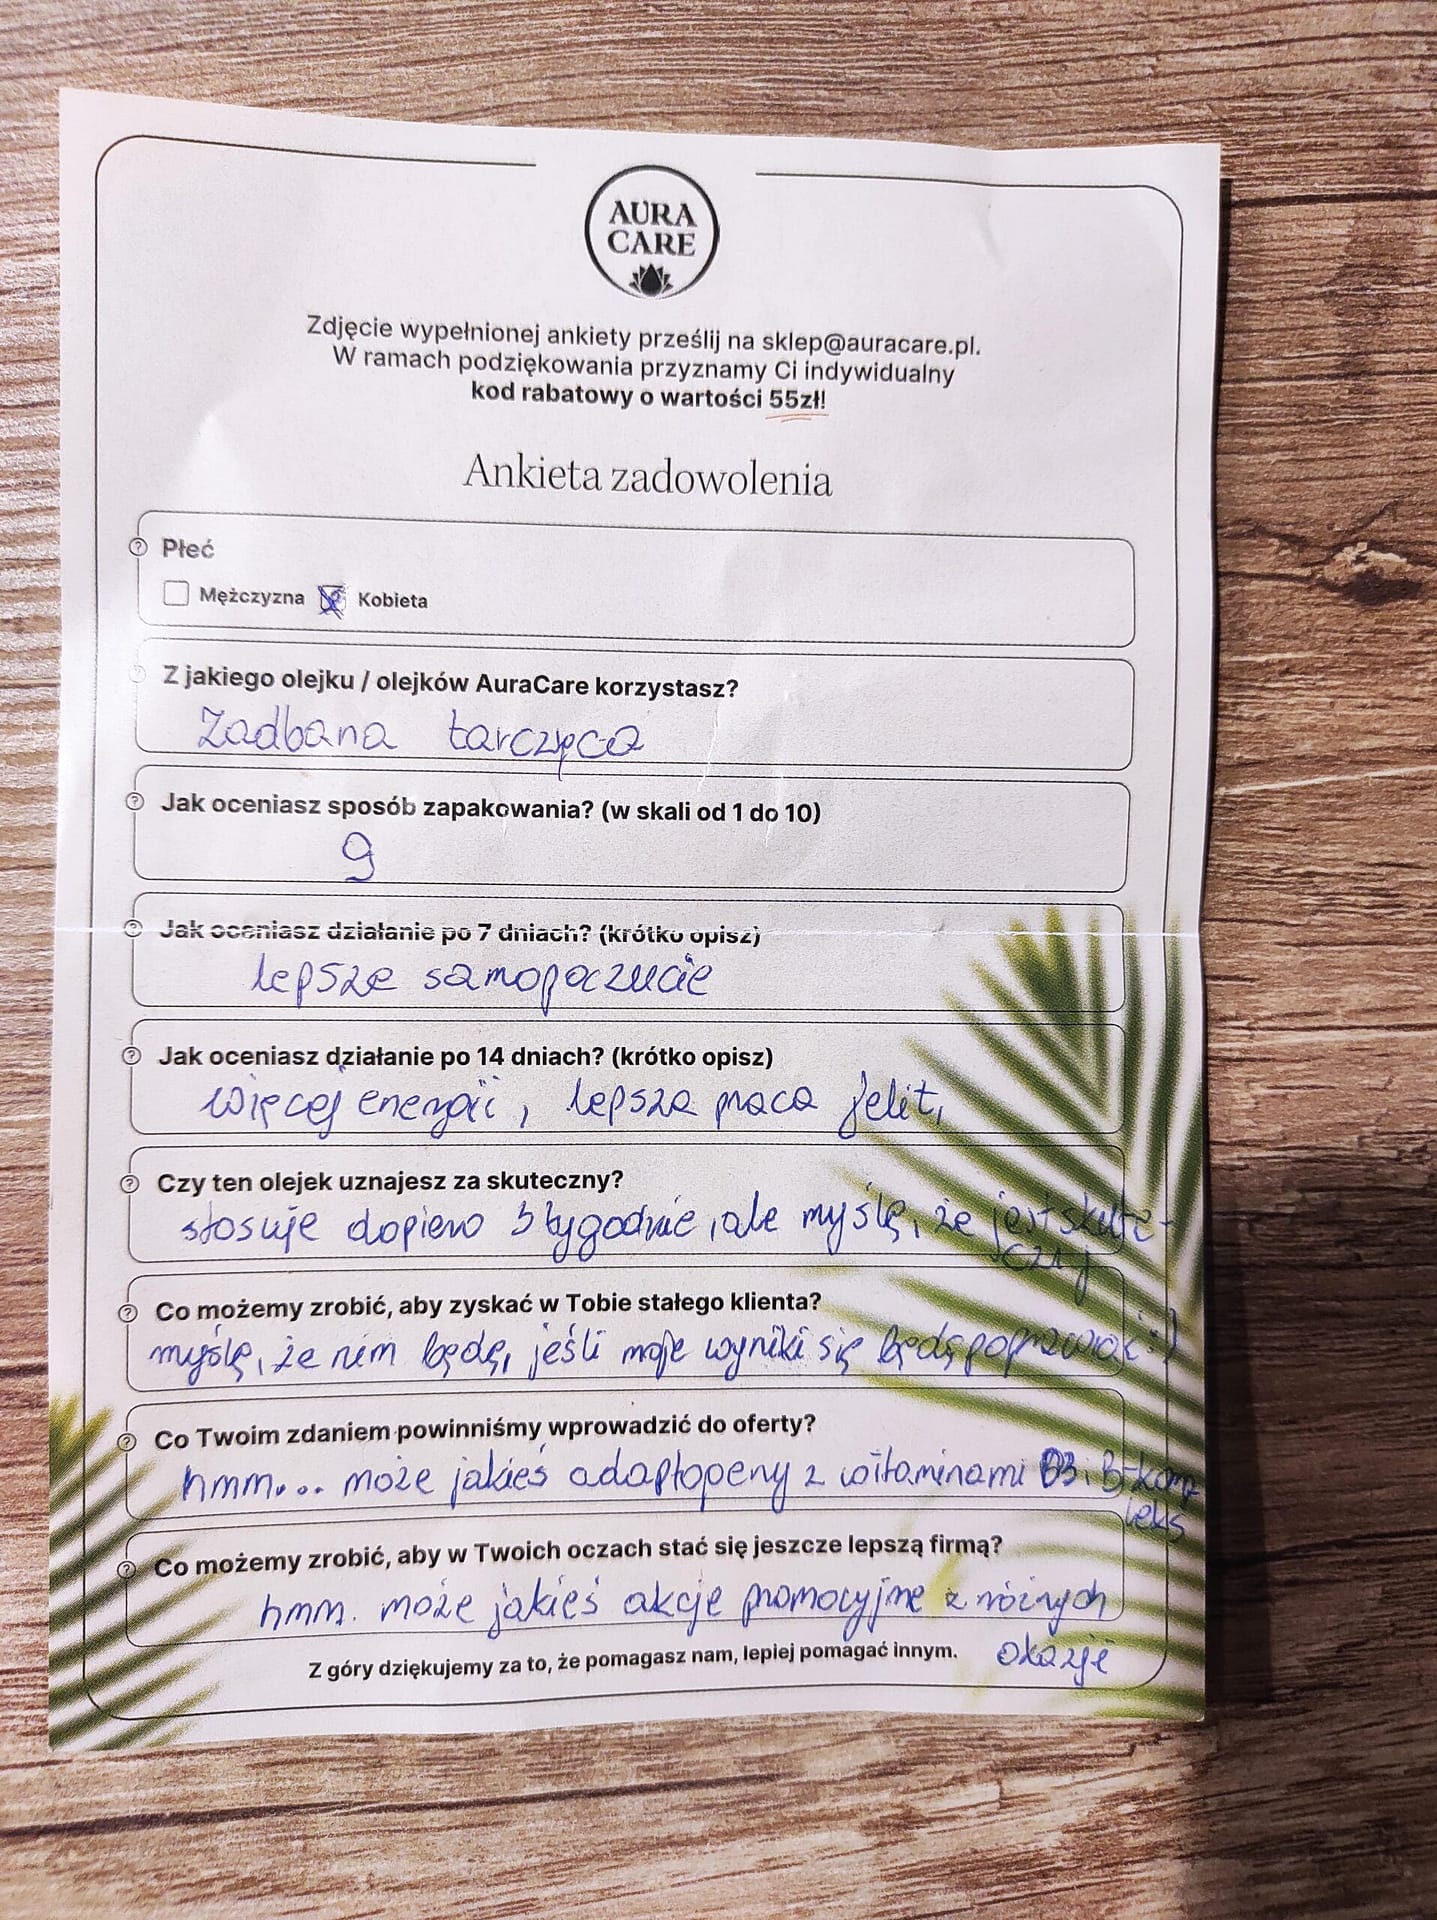 AURA
CARE
Zdjęcie wypełnionej ankiety prześlij na sklep@auracare.pl.
W ramach podziękowania przyznamy Ci indywidualny
kod rabatowy o wartości 55zł!
Ankieta zadowolenia
Płeć
Mężczyzna Kobieta
Z jakiego olejku / olejków AuraCare korzystasz?
Zadbana tarczyca
Jak oceniasz sposób zapakowania? (w skali od 1 do 10)
9
Jak oceniasz działanie po 7 dniach? (krótko opisz)
lepsze samopoczucie
Jak oceniasz działanie po 14 dniach? (krótko opisz)
więcej energii, lepsza praca jelit,
Czy ten olejek uznajesz za skuteczny?
stosuje dopiero 3 tygodnie, ale myślę, że jest skute-
czny
Co możemy zrobić, aby zyskać w Tobie stałego klienta?
myślę, że nim będę, jeśli moje wyniki się będą poprawiać :)
Co Twoim zdaniem powinniśmy wprowadzić do oferty?
hmm... może jakieś adaptopeny z witaminami D3 i B-komp-
leks
Co możemy zrobić, aby w Twoich oczach stać się jeszcze lepszą firmą?
hmm. może jakieś akcje promocyjne z różnych
okazji
Z góry dziękujemy za to, że pomagasz nam, lepiej pomagać innym.